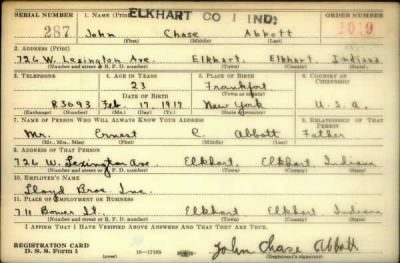 ELKHART CO IND;
SERIAL NUMBER 1. NAME (Print) ORDER NUMBER
287 John Chase Abbott 1019
(First) (Middle) (Last)
2. ADDRESS (Print)
726 W. Lexington Ave. Elkhart Elkhart Indiana
(Number and street or R. F. D. number) (Town) (County) (State)
3. TELEPHONE 4. AGE IN YEARS 5. PLACE OF BIRTH 6. COUNTRY OF CITIZENSHIP
23 Frankfort
DATE OF BIRTH (Town or county)
R3093 Feb. 17, 1917 New York U.S.A.
(Exchange) (Number) (Mo.) (Day) (Yr.) (State or country)
7. NAME OF PERSON WHO WILL ALWAYS KNOW YOUR ADDRESS 8. RELATIONSHIP OF THAT PERSON
Mr. Ernest C. Abbott Father
(Mr., Mrs., Miss) (First) (Middle) (Last)
9. ADDRESS OF THAT PERSON
726 W. Lexington Ave Elkhart, Elkhart, Indiana
(Number and street or R. F. D. number) (Town) (County) (State)
10. EMPLOYER'S NAME
Lloyd Bros. Inc.
11. PLACE OF EMPLOYMENT OR BUSINESS
711 Bower St. Elkhart Elkhart Indiana
(Number and street or R. F. D. number) (Town) (County) (State)
I AFFIRM THAT I HAVE VERIFIED ABOVE ANSWERS AND THAT THEY ARE TRUE.
REGISTRATION CARD
D. S. S. Form 1 16—17105 John Chase Abbott
(Registrant's signature)